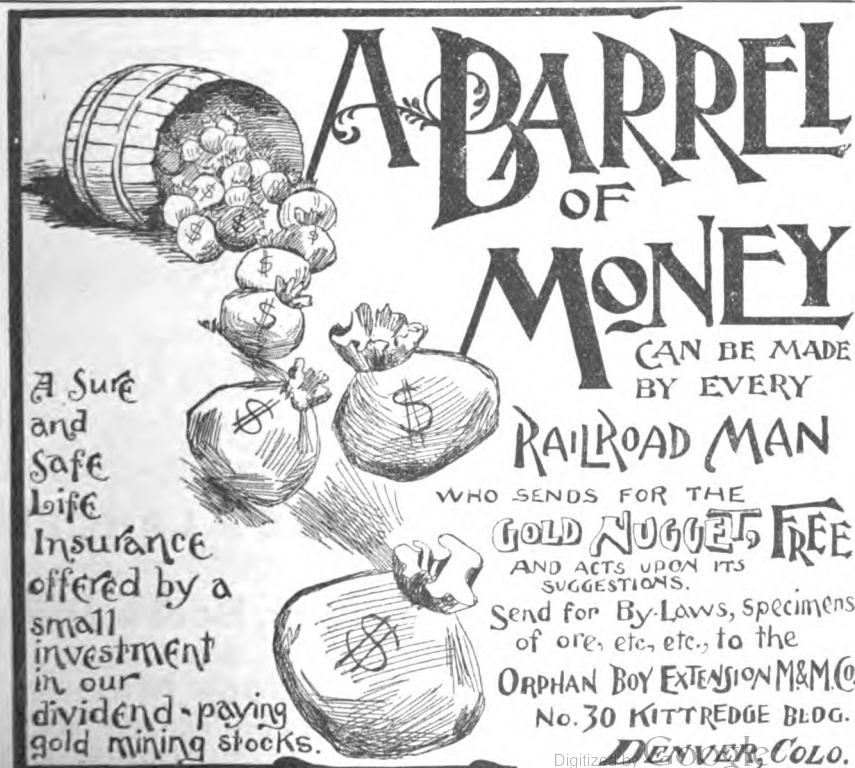 A BARREL
OF
MONEY
CAN BE MADE
BY EVERY
RAILROAD MAN
WHO SENDS FOR THE
GOLD NUGGET, FREE
AND ACTS UPON ITS
SUGGESTIONS.
Send for By-Laws, specimens
of ore, etc, etc., to the
ORPHAN BOY EXTENSION M.& M. Co.
No. 30 KITTREDGE BLDG.
DENVER, COLO.
A Sure
and
Safe
Life
Insurance
offered by a
small
investment
in our
dividend-paying
gold mining stocks.
$
$
$
$
$
$
$
$
Digitized by Google